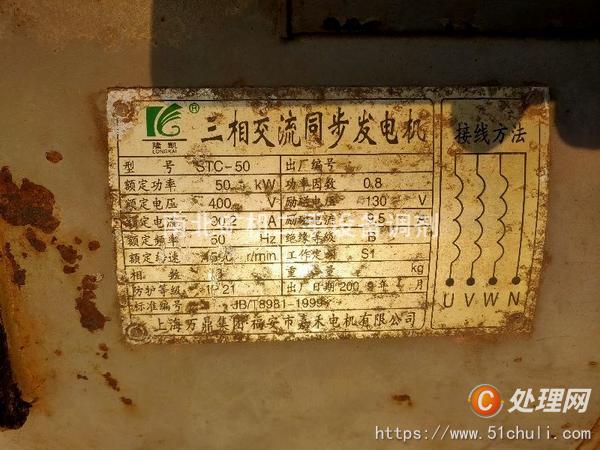 隆凯
LONGKAI
®
三相交流同步发电机
接线方法
型 号 STC-50 出厂编号
额定功率 50 kW 功率因数 0.8
额定电压 400 V 励磁电压 130 V
额定电 A 励磁电流 9.5
额定频率 50 Hz 绝缘等级 B
额定转速 r/min 工作定额 S1
相 数 重 量 kg
防护等级 IP21 出厂日期 200 年 月
标准编号 JB/T8981-1999
上海万鼎集团福安市嘉禾电机有限公司
U V W N
南北 设备调剂
C 处理网
https://www.51chuli.com/